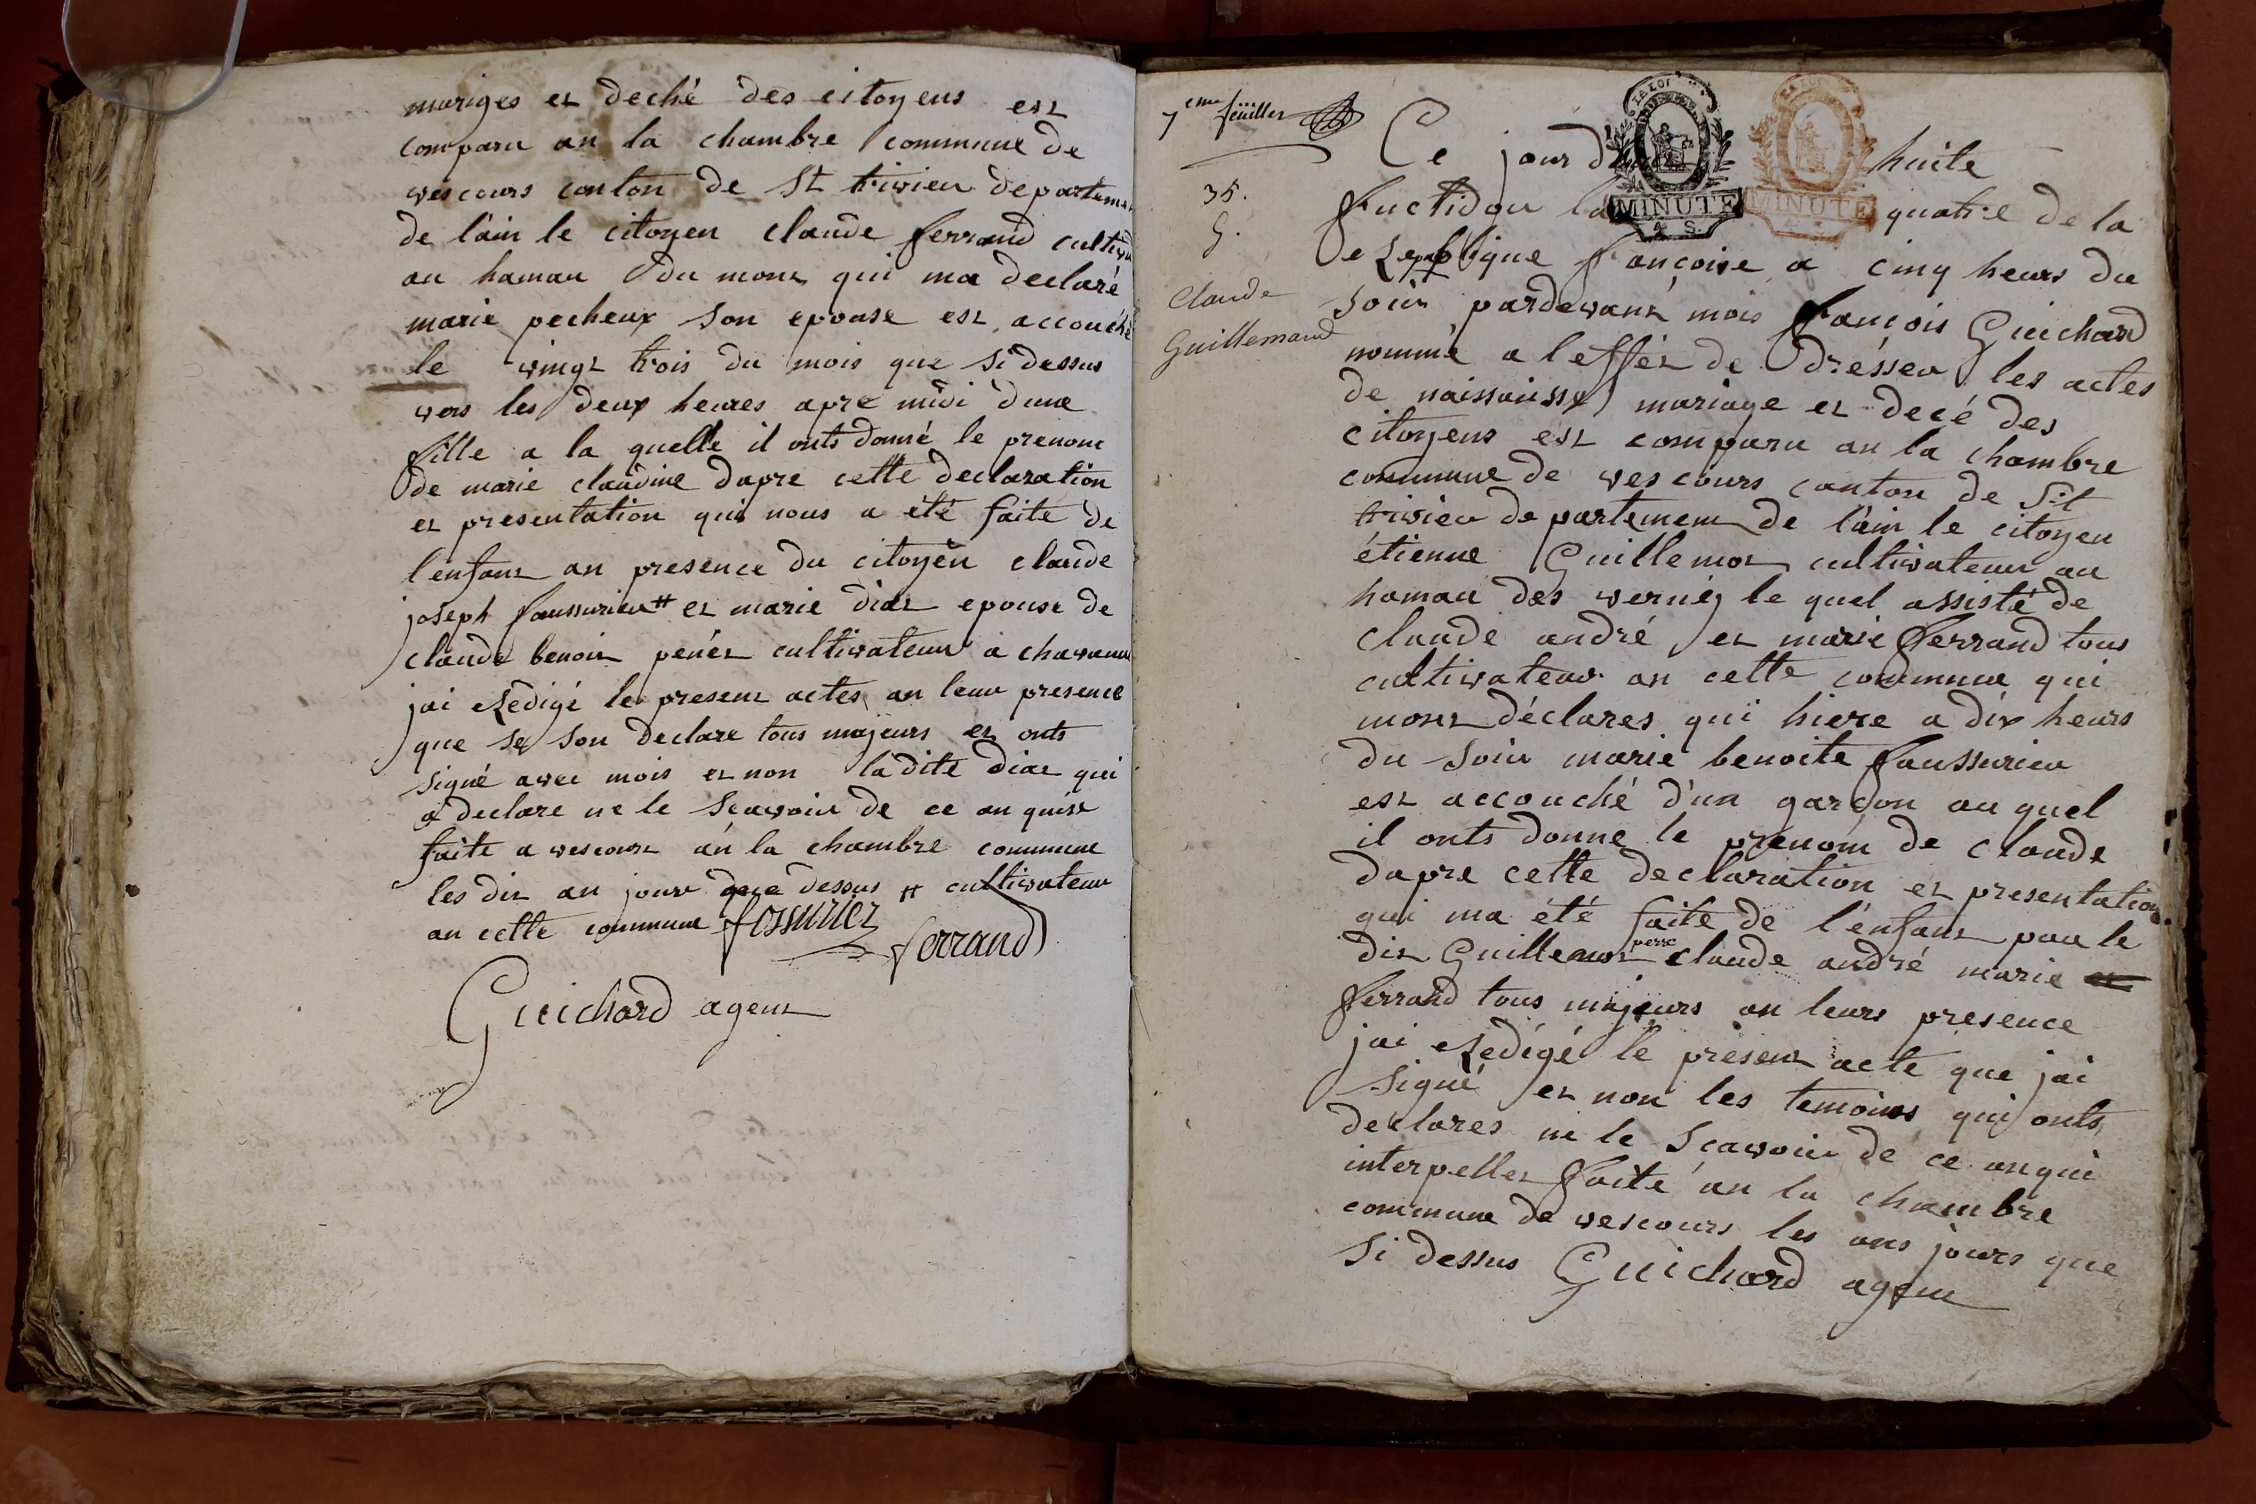 mariges et deché des citoyens est
comparu an la chambre commune de
vescours canton de St trivier departemen
de l'ain le citoyen claude ferrand cultiv
au hamau du mont qui ma declaré
marie pecheux son epouse est accouché
le vingt trois du mois que si dessus
vers les deux heures apre midi dune
fille a la quelle il onts donné le prenom
de marie claudine dapre cette declaration
et presentation qui nous a été faite de
lenfant an presence du citoyen claude
joseph faussurier # et marie diat epouse de
claude benoit penét cultivateur a chavann
jai redigé le present actes an leur presence
que se son declare tous majeurs et onts
signé avec mois et non la dite diat qui
a declare ne le scavoir de ce an quise
faite a vescours an la chambre commune
les dit an jour que dessus # cultivateur
an cette commune fossuriez
ferrand
Guichard agent
7eme feuillet
35.
G.
Claude
Guillemaud
Ce jour d'hui huite
fuctidor la quatre de la
Republique françoise a cinq heurs du
soir pardevant mois françois Guichard
nommé a leffét de drésser les actes
de naissansse mariage et decé des
citoyens est comparu an la chambre
commune de vescours canton de St
trivier departement de l'ain le citoyen
étienne Guillemot cultivateur au
hamau des verney le quel assisté de
claude andré et marie ferrand tous
cultivateur an cette commune qui
mont déclares qui hiere a dix heurs
du soir marie benoite faussurier
est accouché d'un garçon au quel
il onts donne le prenom de claude
dapre cette declaration et presentation
qui ma été faite de l'enfant par le
dit Guillemot perre claude andré marie et
ferrand tous majeurs an leurs presence
jai redigé le present acte que jai
signé et non les temoins qui onts
declares ne le scavoir de ce anqui
interpeller faite an la chambre
commune de vescours les ans jours que
si dessus Guichard agent
LA LOI
MINUTE
4 S.
LA LOI
MINUTE